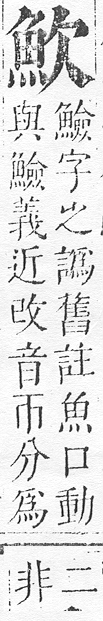 䰼
䲓字之譌舊註魚口動
與䲓義近改音而分爲
二
非